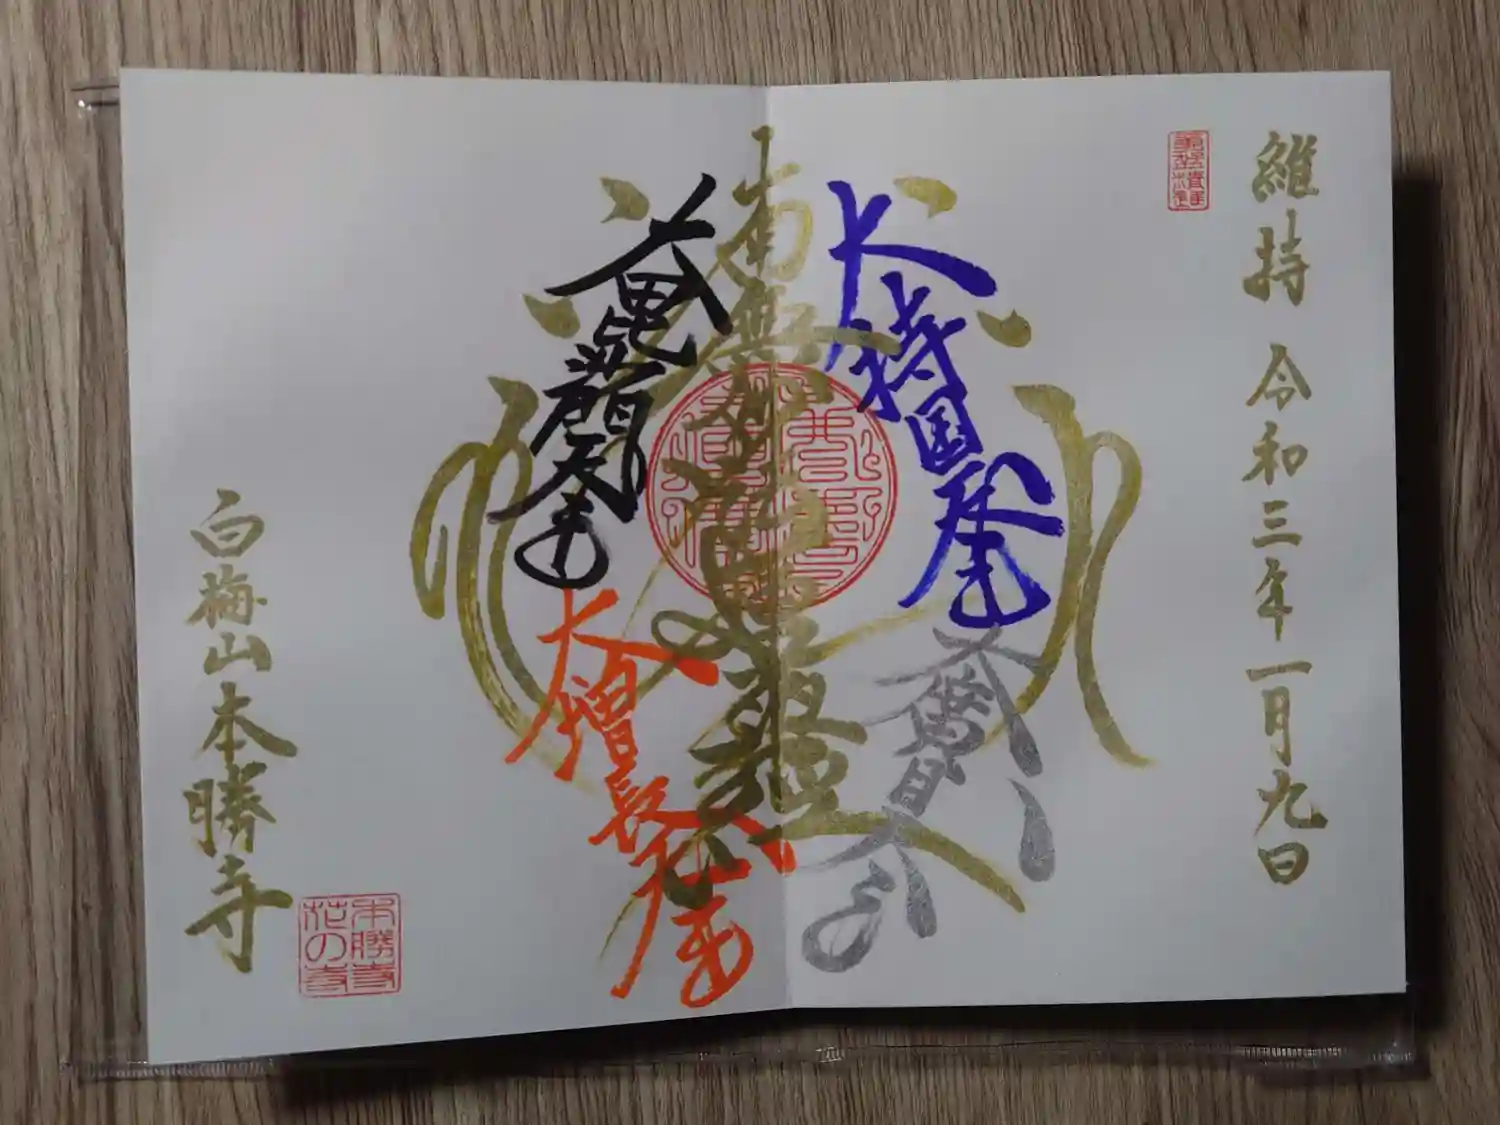 維持 令和三年一月九日
大持国天王
大廣目天王
南無妙法蓮華経
大毘沙門天王
大増長天王
本勝寺
花の寺
白梅山本勝寺